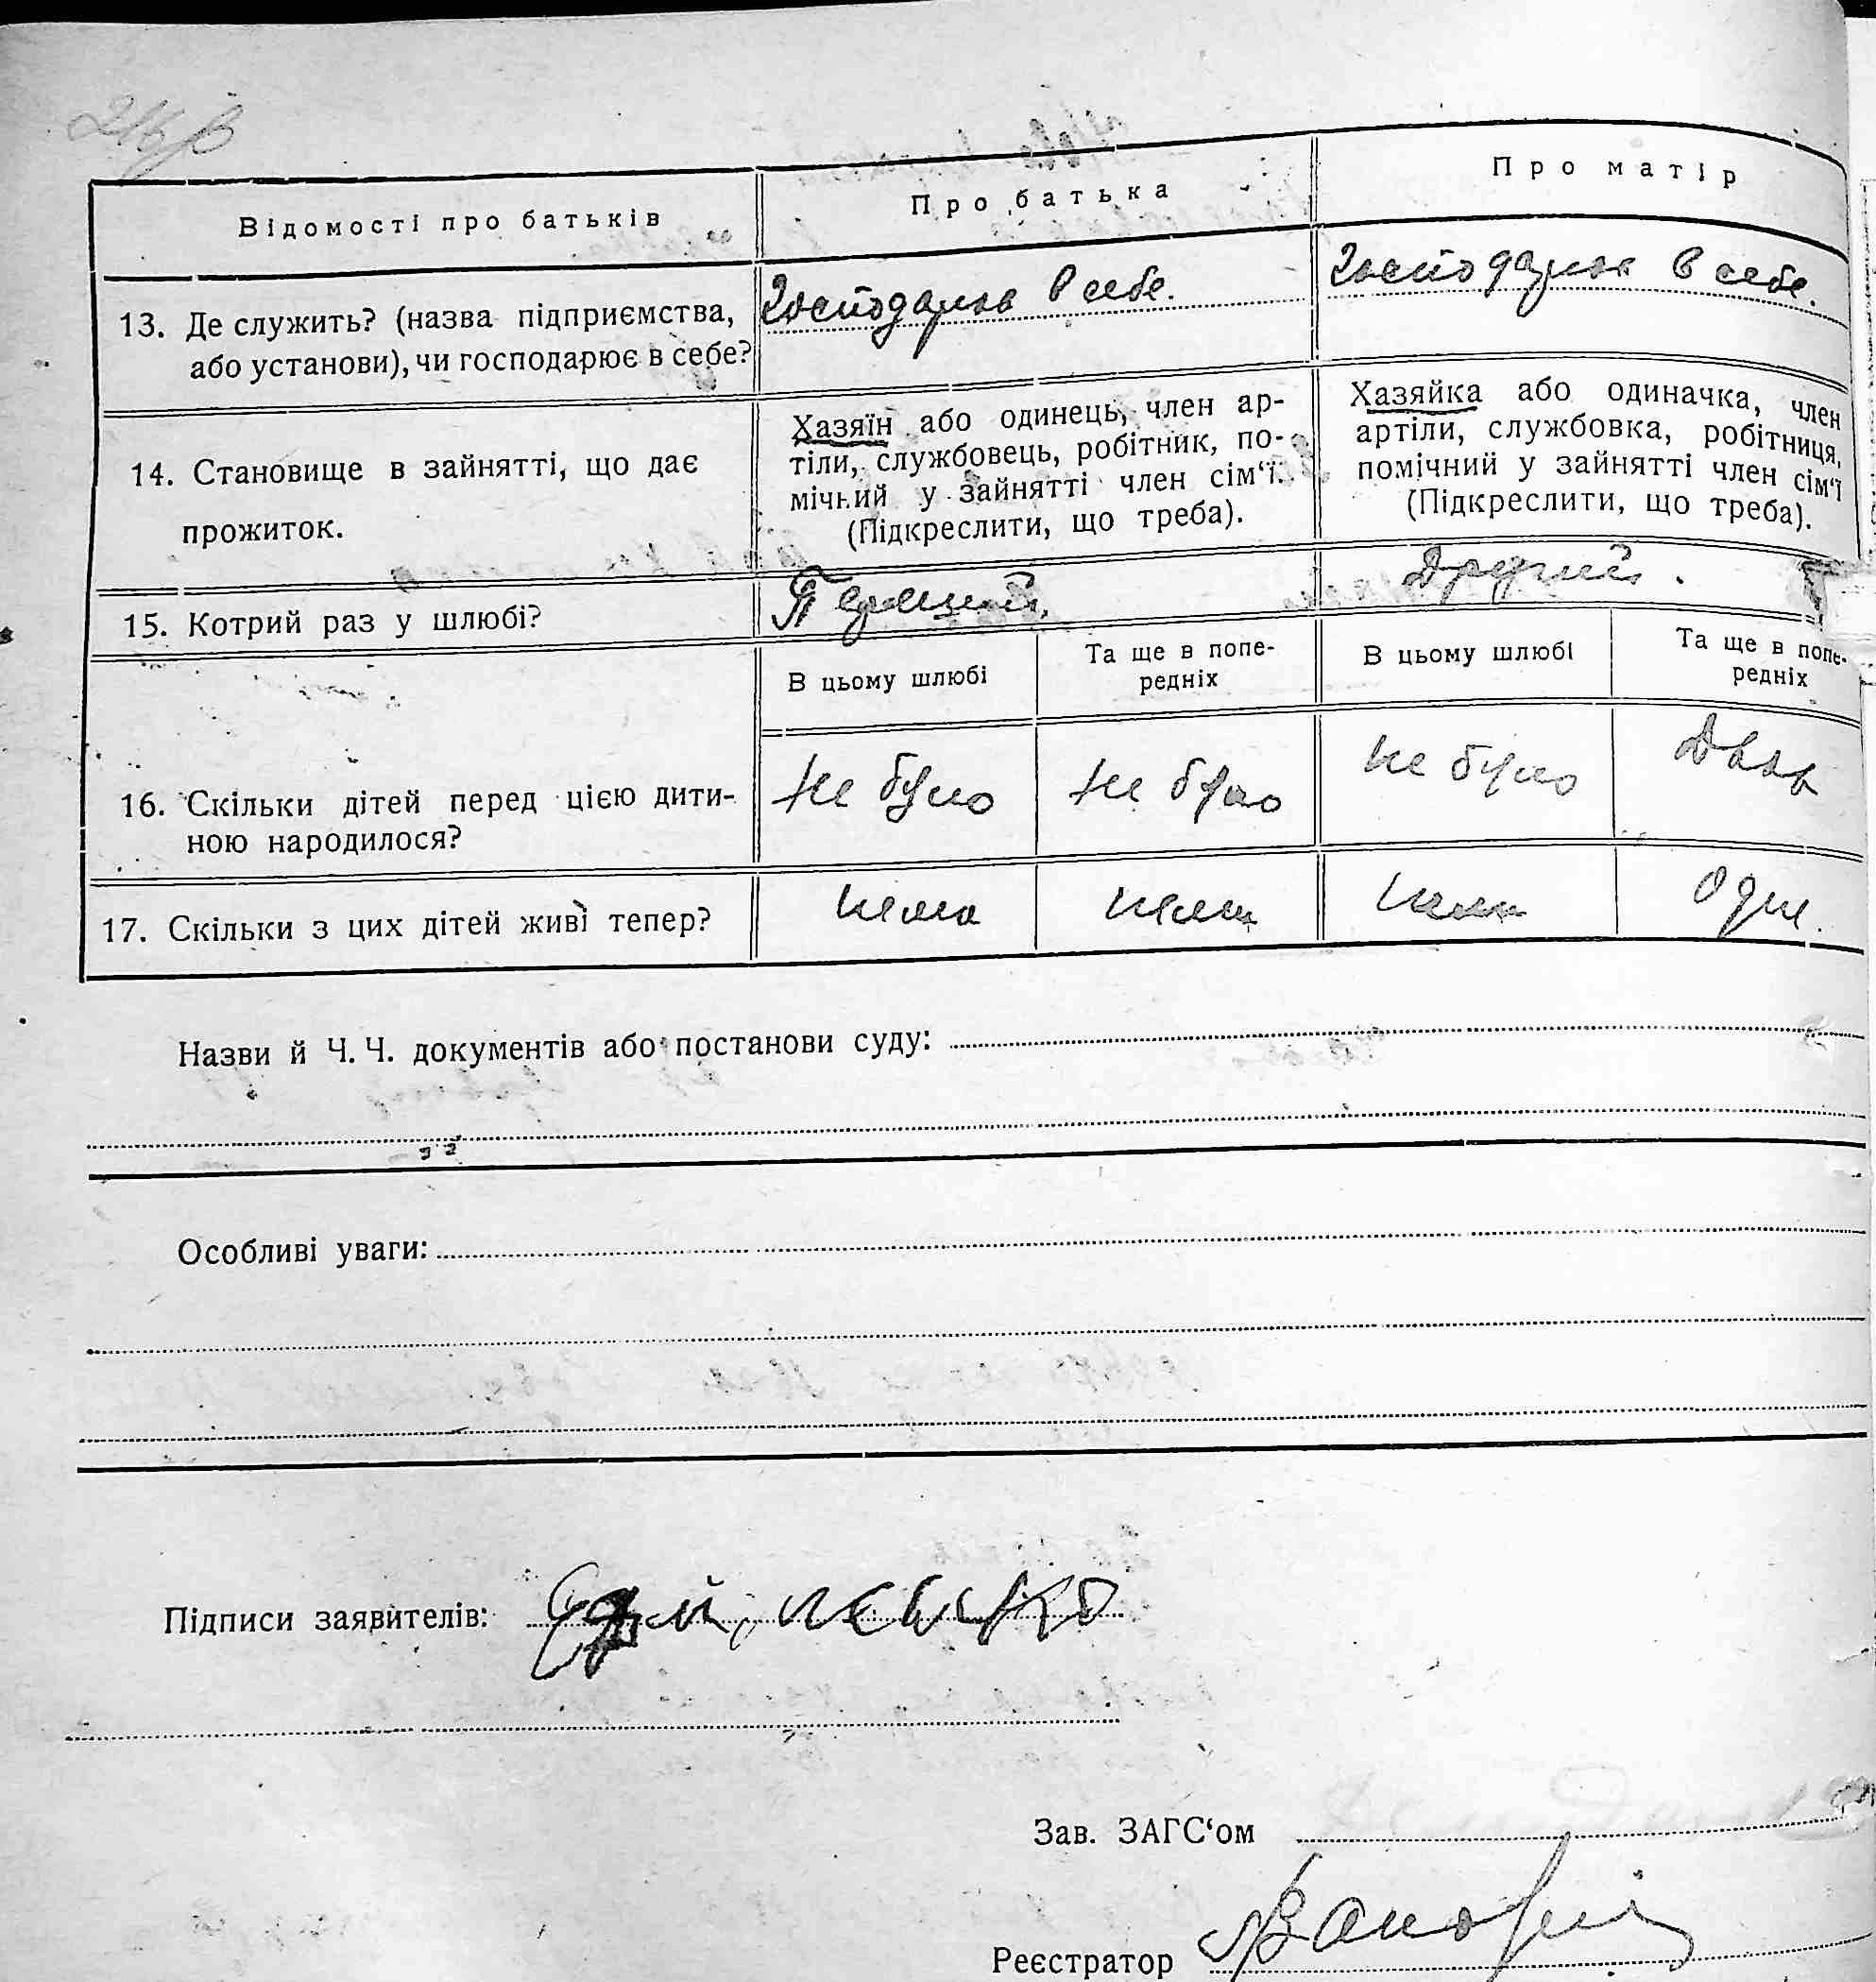 Відомості про батьків
Про батька
Про матір
13. Де служить? (назва підприємства,
або установи), чи господарює в себе?
Господарює в себе.
Господарює в себе.
14. Становище в зайнятті, що дає
прожиток.
Хазяїн або одинець, член ар-
тіли, службовець, робітник, по-
мічний у зайнятті член сім‘ї.
(Підкреслити, що треба).
Хазяйка або одиначка, член
артіли, службовка, робітниця,
помічний у зайнятті член сім‘ї
(Підкреслити, що треба).
15. Котрий раз у шлюбі?
Перший.
Другий.
В цьому шлюбі
Та ще в попе-
редніх
В цьому шлюбі
Та ще в попе-
редніх
16. Скільки дітей перед цією дити-
ною народилося?
Не було
Не було
Не було
Двоє
17. Скільки з цих дітей живі тепер?
нема
нема
нема
Одне.
Назви й Ч. Ч. документів або постанови суду:
Особливі уваги:
Підписи заявителів:
Зав. ЗАГС‘ом
Реєстратор